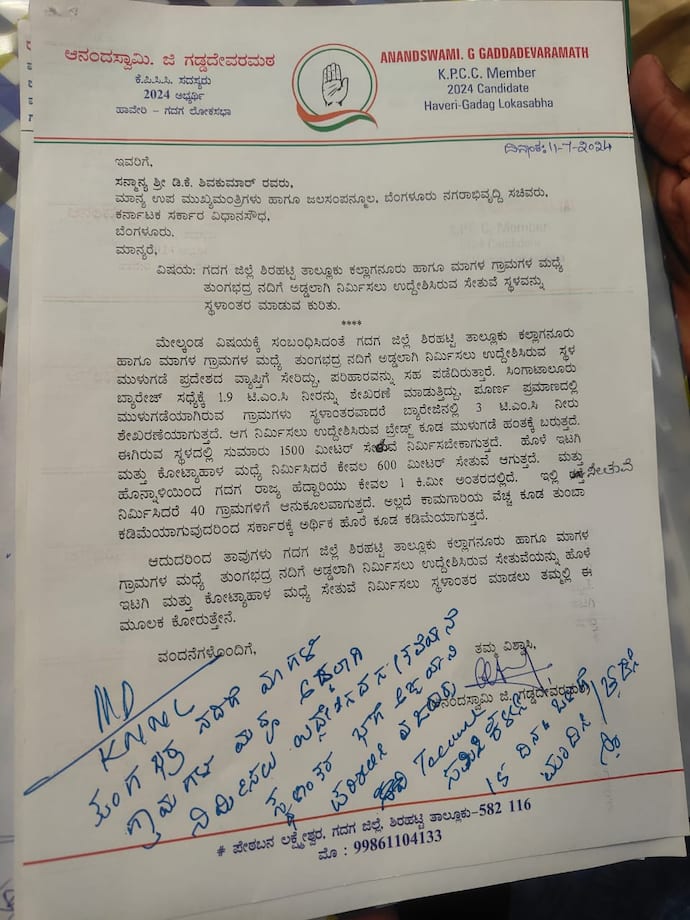 ಆನಂದಸ್ವಾಮಿ. ಜಿ ಗಡ್ಡದೇವರಮಠ
ಕೆ.ಪಿ.ಸಿ.ಸಿ. ಸದಸ್ಯರು
2024 ಅಭ್ಯರ್ಥಿ
ಹಾವೇರಿ – ಗದಗ ಲೋಕಸಭಾ
ANANDSWAMI. G GADDADEVARAMATH
K.P.C.C. Member
2024 Candidate
Haveri-Gadag Lokasabha
ದಿನಾಂಕ: 11-7-2024
ಇವರಿಗೆ,
ಸನ್ಮಾನ್ಯ ಶ್ರೀ ಡಿ.ಕೆ. ಶಿವಕುಮಾರ್ ರವರು,
ಮಾನ್ಯ ಉಪ ಮುಖ್ಯಮಂತ್ರಿಗಳು ಹಾಗೂ ಜಲಸಂಪನ್ಮೂಲ, ಬೆಂಗಳೂರು ನಗರಾಭಿವೃದ್ಧಿ ಸಚಿವರು,
ಕರ್ನಾಟಕ ಸರ್ಕಾರ ವಿಧಾನಸೌಧ,
ಬೆಂಗಳೂರು.
ಮಾನ್ಯರೆ,
ವಿಷಯ: ಗದಗ ಜಿಲ್ಲೆ ಶಿರಹಟ್ಟಿ ತಾಲ್ಲೂಕು ಕಲ್ಲಾಗನೂರು ಹಾಗೂ ಮಾಗಳ ಗ್ರಾಮಗಳ ಮಧ್ಯೆ
ತುಂಗಭದ್ರ ನದಿಗೆ ಅಡ್ಡಲಾಗಿ ನಿರ್ಮಿಸಲು ಉದ್ದೇಶಿಸಿರುವ ಸೇತುವೆ ಸ್ಥಳವನ್ನು
ಸ್ಥಳಾಂತರ ಮಾಡುವ ಕುರಿತು.
****
ಮೇಲ್ಕಂಡ ವಿಷಯಕ್ಕೆ ಸಂಬಂಧಿಸಿದಂತೆ ಗದಗ ಜಿಲ್ಲೆ ಶಿರಹಟ್ಟಿ ತಾಲ್ಲೂಕು ಕಲ್ಲಾಗನೂರು
ಹಾಗೂ ಮಾಗಳ ಗ್ರಾಮಗಳ ಮಧ್ಯೆ ತುಂಗಭದ್ರ ನದಿಗೆ ಅಡ್ಡಲಾಗಿ ನಿರ್ಮಿಸಲು ಉದ್ದೇಶಿಸಿರುವ ಸ್ಥಳ
ಮುಳುಗಡೆ ಪ್ರದೇಶದ ವ್ಯಾಪ್ತಿಗೆ ಸೇರಿದ್ದು, ಪರಿಹಾರವನ್ನು ಸಹ ಪಡೆದಿರುತ್ತಾರೆ. ಸಿಂಗಾಟಾಲೂರು
ಬ್ಯಾರೇಜ್ ಸಧ್ಯೆಕ್ಕೆ 1.9 ಟಿ.ಎಂ.ಸಿ ನೀರನ್ನು ಶೇಖರಣೆ ಮಾಡುತ್ತಿದ್ದು, ಪೂರ್ಣ ಪ್ರಮಾಣದಲ್ಲಿ
ಮುಳುಗಡೆಯಾಗಿರುವ ಗ್ರಾಮಗಳು ಸ್ಥಳಾಂತರವಾದರೆ ಬ್ಯಾರೇಜಿನಲ್ಲಿ 3 ಟಿ.ಎಂ.ಸಿ ನೀರು
ಶೇಖರಣೆಯಾಗುತ್ತದೆ. ಆಗ ನಿರ್ಮಿಸಲು ಉದ್ದೇಶಿಸಿರುವ ಬ್ರೀಡ್ಜ್ ಕೂಡ ಮುಳುಗಡೆ ಹಂತಕ್ಕೆ ಬರುತ್ತದೆ.
ಈಗಿರುವ ಸ್ಥಳದಲ್ಲಿ ಸುಮಾರು 1500 ಮೀಟರ್ ಸೇತುವೆ ನಿರ್ಮಿಸಬೇಕಾಗುತ್ತದೆ. ಹೊಳೆ ಇಟಗಿ
ಮತ್ತು ಕೋಟ್ಯಾಹಾಳ ಮಧ್ಯೆ ನಿರ್ಮಿಸಿದರೆ ಕೇವಲ 600 ಮೀಟರ್ ಸೇತುವೆ ಆಗುತ್ತದೆ. ಮತ್ತು
ಹೊನ್ನಾಳಿಯಿಂದ ಗದಗ ರಾಜ್ಯ ಹೆದ್ದಾರಿಯು ಕೇವಲ 1 ಕಿ.ಮೀ ಅಂತರದಲ್ಲಿದೆ. ಇಲ್ಲಿ ಸೇತುವೆ
ನಿರ್ಮಿಸಿದರೆ 40 ಗ್ರಾಮಗಳಿಗೆ ಆನುಕೂಲವಾಗುತ್ತದೆ. ಅಲ್ಲದೆ ಕಾಮಗಾರಿಯ ವೆಚ್ಚ ಕೂಡ ತುಂಬಾ
ಕಡಿಮೆಯಾಗುವುದರಿಂದ ಸರ್ಕಾರಕ್ಕೆ ಅರ್ಥಿಕ ಹೊರೆ ಕೂಡ ಕಡಿಮೆಯಾಗುತ್ತದೆ.
ಆದುದರಿಂದ ತಾವುಗಳು ಗದಗ ಜಿಲ್ಲೆ ಶಿರಹಟ್ಟಿ ತಾಲ್ಲೂಕು ಕಲ್ಲಾಗನೂರು ಹಾಗೂ ಮಾಗಳ
ಗ್ರಾಮಗಳ ಮಧ್ಯೆ ತುಂಗಭದ್ರ ನದಿಗೆ ಅಡ್ಡಲಾಗಿ ನಿರ್ಮಿಸಲು ಉದ್ದೇಶಿಸಿರುವ ಸೇತುವೆಯನ್ನು ಹೊಳೆ
ಇಟಗಿ ಮತ್ತು ಕೋಟ್ಯಾಹಾಳ ಮಧ್ಯೆ ಸೇತುವೆ ನಿರ್ಮಿಸಲು ಸ್ಥಳಾಂತರ ಮಾಡಲು ತಮ್ಮಲ್ಲಿ ಈ
ಮೂಲಕ ಕೋರುತ್ತೇನೆ.
ವಂದನೆಗಳೊಂದಿಗೆ,
ತಮ್ಮ ವಿಶ್ವಾಸಿ,
ಆನಂದಸ್ವಾಮಿ ಜಿ. ಗಡ್ಡದೇವರಮಠ
MD
KNNL
ತುಂಗಭದ್ರ ನದಿಗೆ ಮಾಗಳ
ಗ್ರಾಮಗಳ ಮಧ್ಯ ಅಡ್ಡಲಾಗಿ
ನಿರ್ಮಿಸಲು
ಸ್ಥಳಾಂತರ ಬಗ್ಗೆ
15 ದಿನ
# ಪೇಠಬನ ಲಕ್ಷ್ಮೇಶ್ವರ, ಗದಗ ಜಿಲ್ಲೆ, ಶಿರಹಟ್ಟಿ ತಾಲ್ಲೂಕು-582 116
ಮೊ : 99861104133